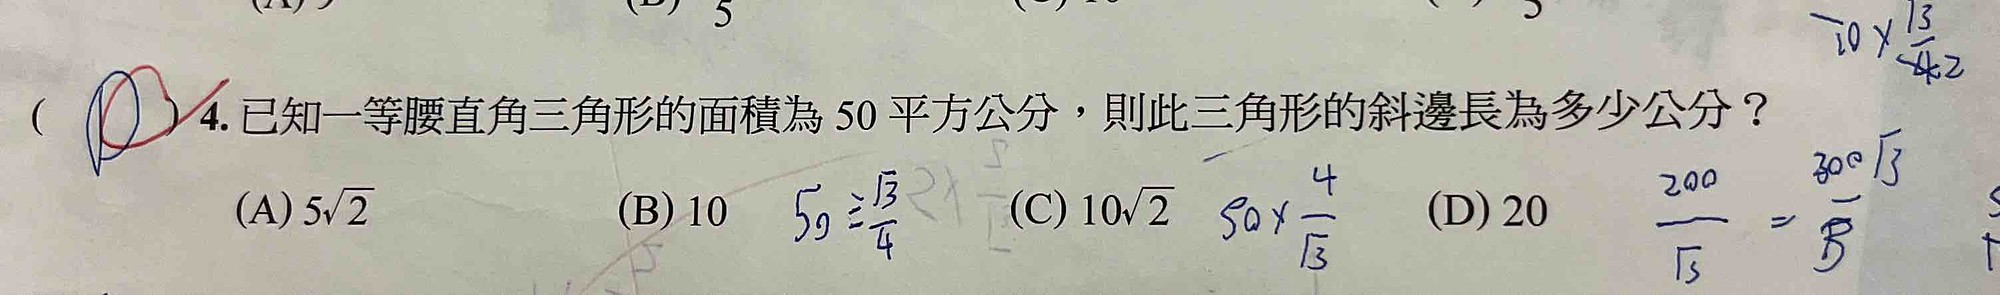 5
10 × √3/4 2
( D ) 4. 已知一等腰直角三角形的面積為 50 平方公分，則此三角形的斜邊長為多少公分？
(A) 5√2 (B) 10 50 ÷ √3/4 (C) 10√2 50 × 4/√3 (D) 20 200/√3 =